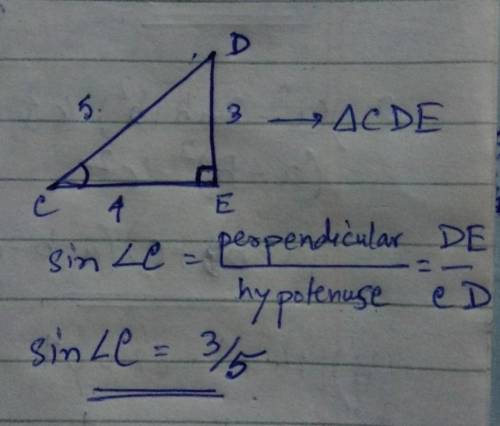 D
5
3 → ΔCDE
C 4 E
sin∠C = perpendicular/hypotenuse = DE/CD
sin∠C = 3/5